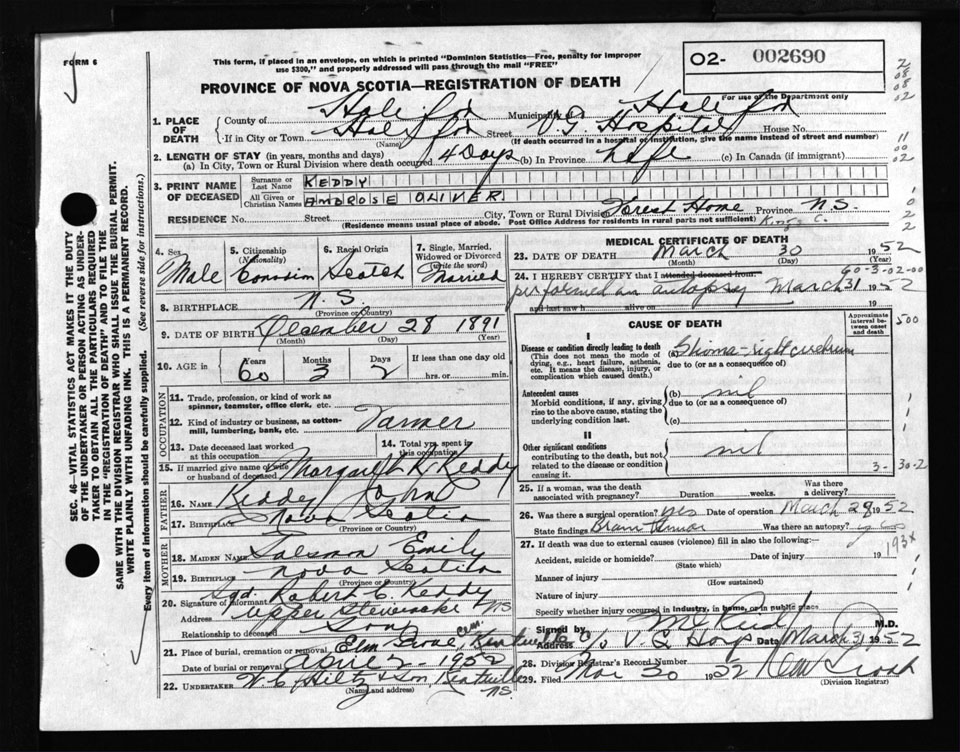 FORM 6
This form, if placed in an envelope, on which is printed "Dominion Statistics—Free, penalty for improper
use $300," and properly addressed will pass through the mail "FREE"
O2- 002690
For use of the Department only
PROVINCE OF NOVA SCOTIA—REGISTRATION OF DEATH
1. PLACE OF DEATH
County of Halifax Municipality of Halifax
If in City or Town Halifax Street V.G. Hospital House No.
(Name) (If death occurred in a hospital or institution, give the name instead of street and number)
2. LENGTH OF STAY (in years, months and days)
(a) In City, Town or Rural Division where death occurred 4 Days (b) In Province Life (c) In Canada (if immigrant)
3. PRINT NAME OF DECEASED
Surname or Last Name KEDDY
All Given or Christian Names AMBROSE OLIVER
RESIDENCE House No. Street City, Town or Rural Division Forest Home Province N.S.
(Residence means usual place of abode. Post Office Address for residents in rural parts not sufficient) Kings C.
4. Sex Male
5. Citizenship (Nationality) Canadian
6. Racial Origin Scotch
7. Single, Married, Widowed or Divorced (write the word) Married
8. BIRTHPLACE N.S.
(Province or Country)
9. DATE OF BIRTH December 28 1891
(Month) (Day) (Year)
10. AGE in Years 60 Months 3 Days 2 If less than one day old
hrs. or min.
OCCUPATION
11. Trade, profession, or kind of work as spinner, teamster, office clerk, etc.
12. Kind of industry or business, as cotton-mill, lumbering, bank, etc. Farmer
13. Date deceased last worked at this occupation
14. Total yrs. spent in this occupation
15. If married give name of wife or husband of deceased Margaret K. Keddy
FATHER
16. NAME Keddy John
17. BIRTHPLACE Nova Scotia
(Province or Country)
MOTHER
18. MAIDEN NAME Emily
19. BIRTHPLACE Nova Scotia
(Province or Country)
20. Signature of informant Sgd. Robert C. Keddy
Address Upper NS
Relationship to deceased Son
21. Place of burial, cremation or removal Elm Grove Cem. Kentville
Date of burial or removal April 2 - 1952
22. UNDERTAKER W. C. Hiltz & Son, Kentville NS
(Name and address)
MEDICAL CERTIFICATE OF DEATH
23. DATE OF DEATH March 30 1952
(Month) (Day) (Year)
60-3-02-00
24. I HEREBY CERTIFY that I attended deceased from:
performed an autopsy March 31 1952
and last saw h alive on 19
CAUSE OF DEATH
Approximate interval between onset and death
Disease or condition directly leading to death
(This does not mean the mode of dying, e.g., heart failure, asthenia, etc. It means the disease, injury, or complication which caused death.
(a) Glioma - right cerebrum
due to (or as a consequence of)
Antecedent causes
Morbid conditions, if any, giving rise to the above cause, stating the underlying condition last.
(b) nil
due to (or as a consequence of)
(c)
II
Other significant conditions
contributing to the death, but not related to the disease or condition causing it.
nil
3- 30-2
25. If a woman, was the death associated with pregnancy? Duration weeks. Was there a delivery?
26. Was there a surgical operation? yes Date of operation March 28 1952
State findings Brain tumor Was there an autopsy? yes
193x
27. If death was due to external causes (violence) fill in also the following:—
Accident, suicide or homicide? Date of injury 19
(State which)
Manner of injury
(How sustained)
Nature of injury
Specify whether injury occurred in industry, in home, or in public place
Signed by Reid M.D.
Address c/o V. G. Hosp Date March 31 1952
28. Division Registrar's Record Number
29. Filed Mar 30 1952
(Division Registrar)
SEC. 46—VITAL STATISTICS ACT MAKES IT THE DUTY
OF THE UNDERTAKER OR PERSON ACTING AS UNDER-
TAKER TO OBTAIN ALL THE PARTICULARS REQUIRED
IN THE "REGISTRATION OF DEATH" AND TO FILE THE
SAME WITH THE DIVISION REGISTRAR WHO SHALL ISSUE THE BURIAL PERMIT.
WRITE PLAINLY WITH UNFADING INK. THIS IS A PERMANENT RECORD.
Every item of information should be carefully supplied. (See reverse side for instructions.)
2
08
08
02
11
00
02
500